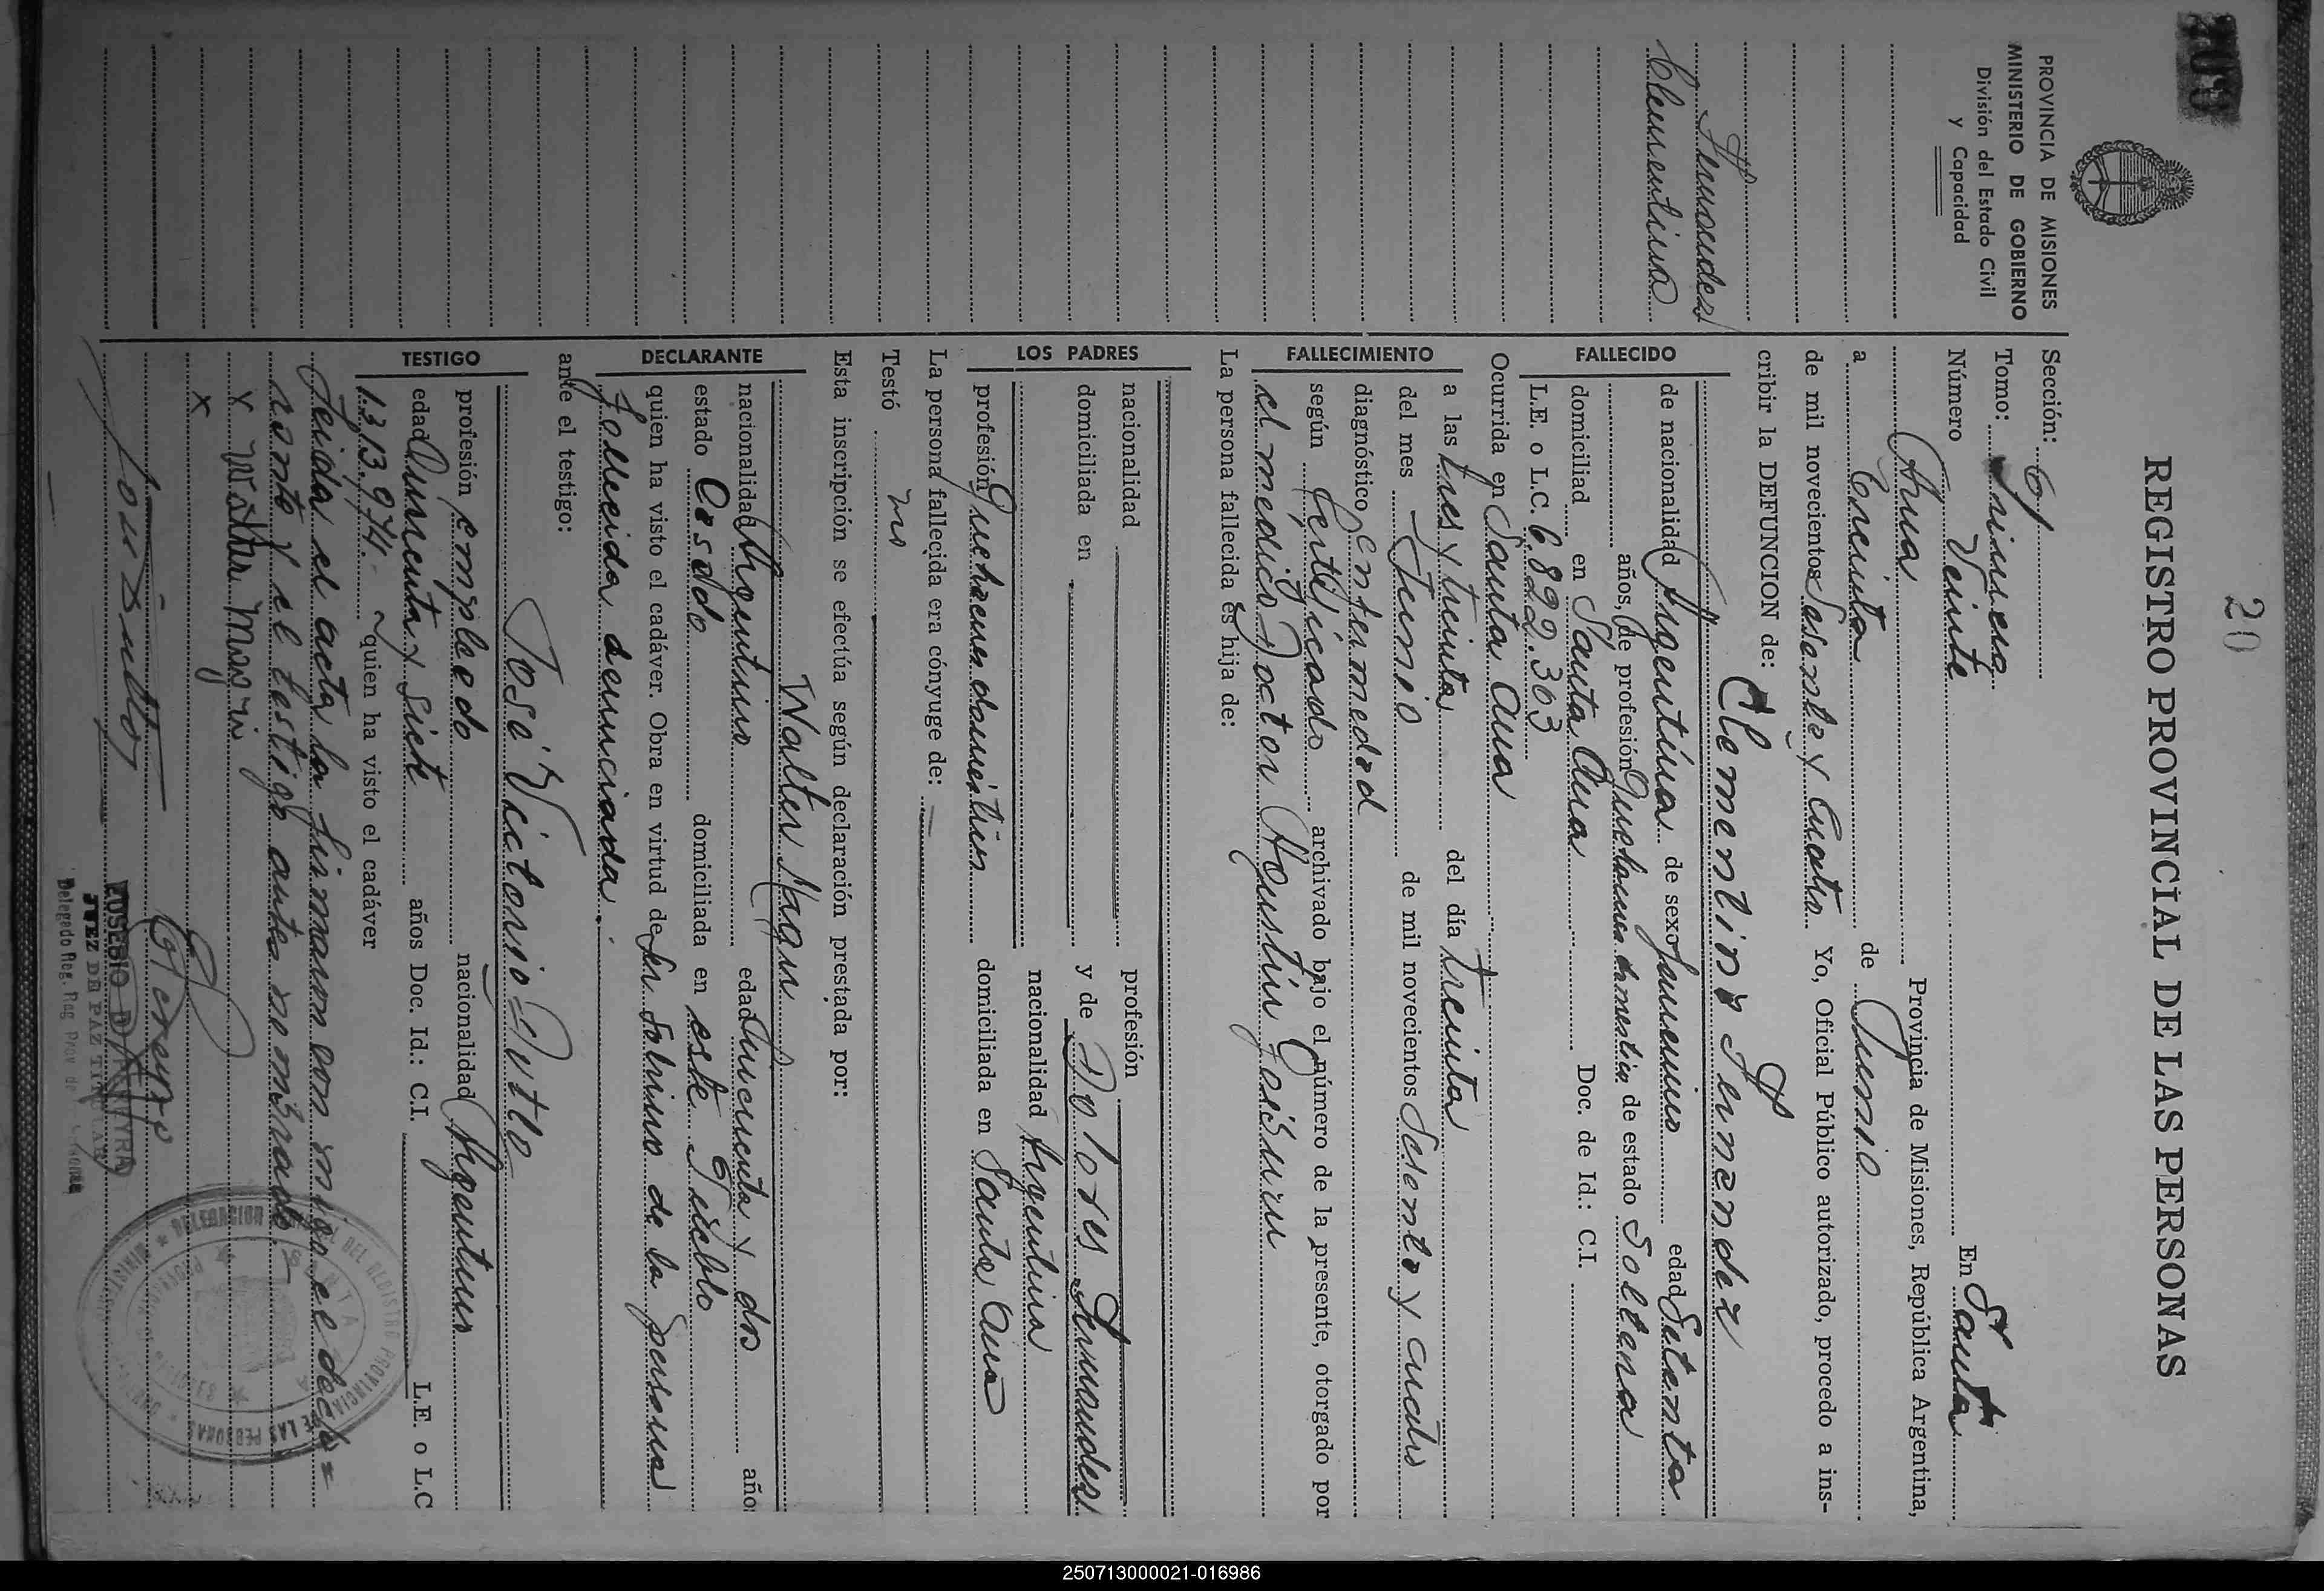 20
REGISTRO PROVINCIAL DE LAS PERSONAS
PROVINCIA DE MISIONES
MINISTERIO DE GOBIERNO
División del Estado Civil
y Capacidad
Fernandez
Clementina
Sección:
Tomo: Primero
Número Veinte En Santa
Ana Provincia de Misiones, República Argentina,
a treinta de Junio
de mil novecientos Sesenta y Cuatro Yo, Oficial Público autorizado, procedo a ins-
cribir la DEFUNCION de:
FALLECIDO
Clementina Fernandez
de nacionalidad Argentina de sexo femenino edad Setenta
años, de profesión Quehaceres domesticos de estado Soltera
domiciliad en Santa Ana Doc. de Id.: C.I.
L.E. o L.C. 6.822.303
Ocurrida en Santa Ana
FALLECIMIENTO
a las tres y treinta del día treinta
del mes Junio de mil novecientos Sesenta y cuatro
diagnóstico enfermedad
según Certificado archivado bajo el número de la presente, otorgado por
el medico Doctor Agustín
La persona fallecida es hija de:
LOS PADRES
nacionalidad profesión
domiciliada en y de Dolores Fernandez
nacionalidad Argentina
profesión Quehaceres domésticos domiciliada en Santa Ana
La persona fallecida era cónyuge de:
Testó no
Esta inscripción se efectúa según declaración prestada por:
DECLARANTE
Walter Magri
nacionalidad Argentino edad Cincuenta y dos años
estado Casado domiciliada en este Pueblo
quien ha visto el cadáver. Obra en virtud de ser sobrino de la persona
fallecida denunciada.
ante el testigo:
TESTIGO
José Victorio
profesión empleado nacionalidad Argentino
edad Cuarenta y Siete años Doc. Id.: C.I. L.E. o L.C
1.313.974.- quien ha visto el cadáver
Leida el acta la firmaron con migo el decla=
rante y el testigo antes nombrado
x Walter Magri
x
EUSEBIO
JUEZ DE PAZ TITULAR
Delegado Reg.
DELEGACION DEL REGISTRO PROVINCIAL DE LAS PERSONAS
250713000021-016986